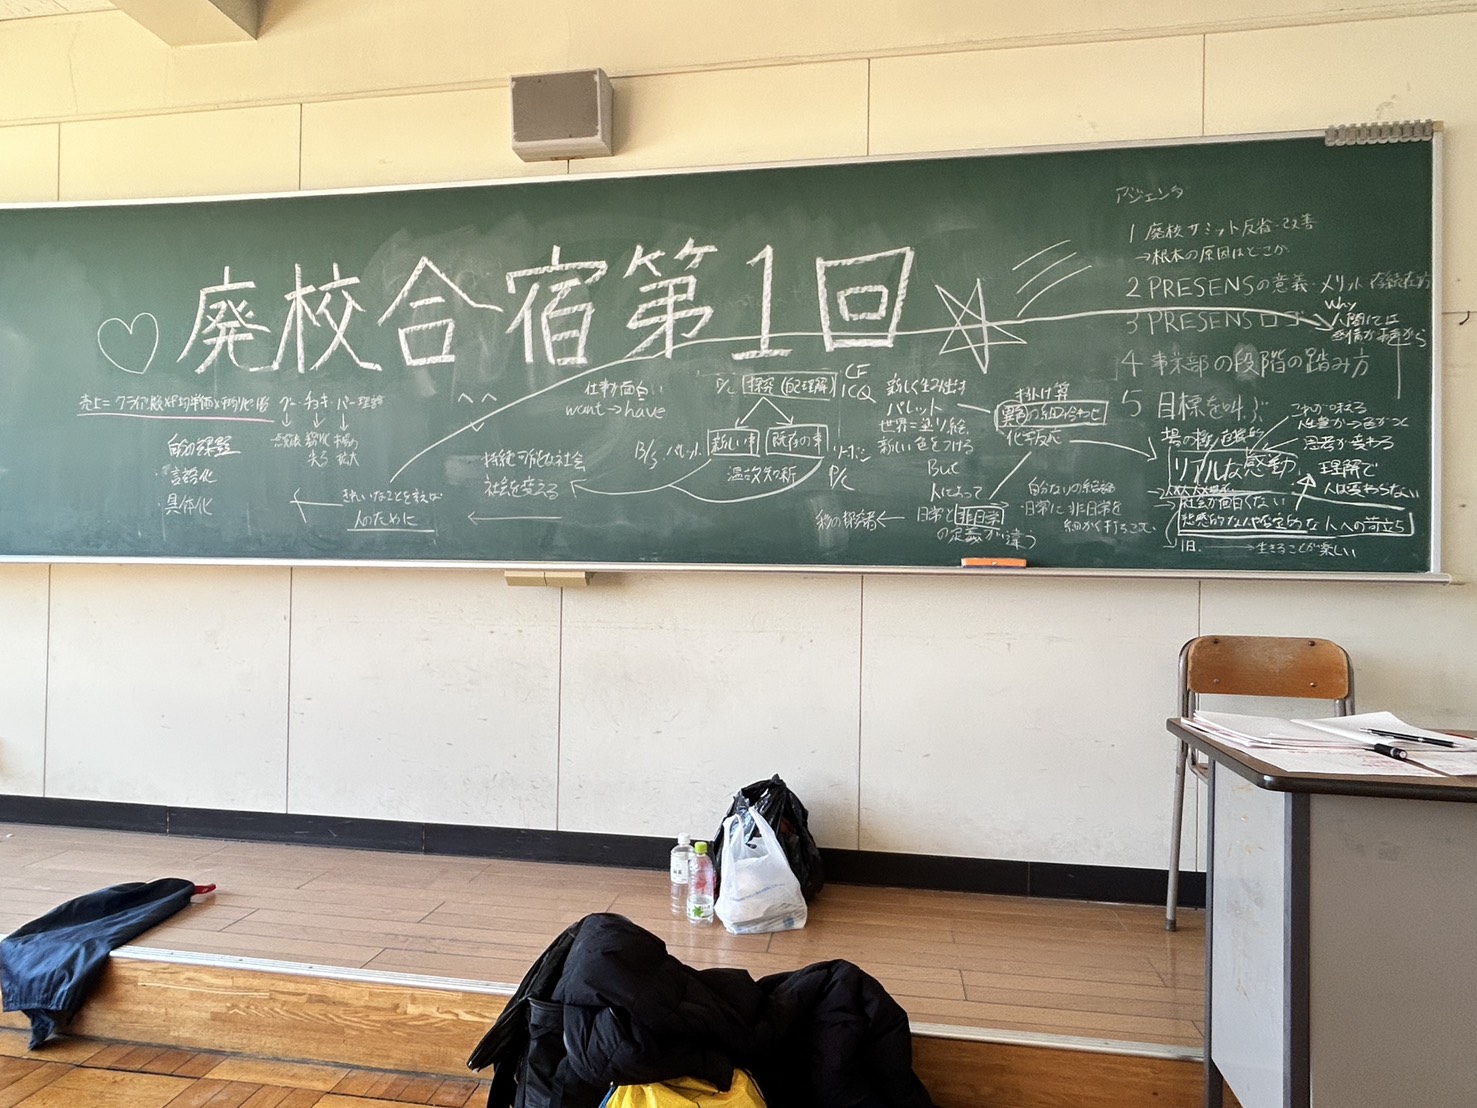 廃校合宿第1回
アジェンダ
1 廃校サミット反省・改善
→根本の原因はどこか
2 PRESENSの意義・メリット 存続在方
3 PRESENSロゴ
Why
人間には
感情が
4 事業部の段階の踏み方
5 目標を叫ぶ
売上=クライアント数×平均単価×
グー・チョキ・パー理論
自分の課題
・言語化
・具体化
きれいなことを言えば
人のために
仕事が面白い
want→have
持続可能な社会
社会を変える
P/L
探究(再理解)
CF
ICQ
B/S
パレット
新しい事
既存の事
P/L
温故知新
新しく生み出す
パレット
世界=塗り絵
新しい色をつける
But
人によって
日常と非日常
の定義が違う
掛け算
異色の組み合わせ
化学反応
自分なりの結論
・日常に非日常を
細かく打ちこむ
リアルな感動
思考が変わる
理解で
人は変わらない
社会が面白くない
な人への苛立ち
旧
→生きることが楽しい